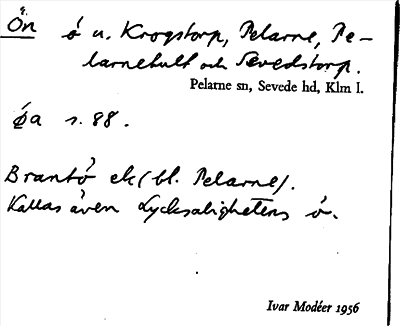 Ön ö u. Krogstorp, Pelarne, Pe-
larnehult och Sevedstorp.
Pelarne sn, Sevede hd, Klm l.
Öa s. 88.
Brantö ek (bl. Pelarne).
Kallas även Lycksalighetens ö.
Ivar Modéer 1956